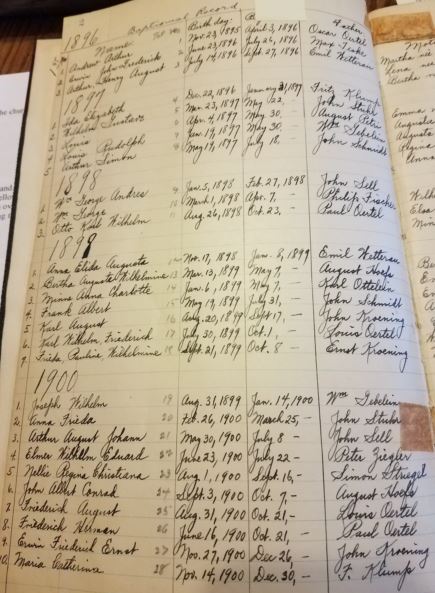 2
Baptismal Record
1896 Name Birthday: B Father
1 Andrew Arthur 1 Nov. 23, 1895 April 3, 1896 Oscar Oertel
2 Erwin John Frederick 2 June 23, 1896 July 26, 1896 Max Tiske
3 Arthur Henry August 3 July 14, 1896 Sept. 27, 1896 Emil Witterau
1897
1. Ida Elizabeth 4 Dec. 22, 1896 January 31, 1897 Fritz Klump
2. Wilhelm Gustave 5 Mar. 23, 1897 May 22, John Stuhr
3. Louis 6 Apr. 4, 1897 May 30, – August Peter
4. Louis Rudolph 7 Jan. 19, 1897 May 30, – Wm Gebelin
5. Arthur Simon 8 May 19, 1897 July 18, – John Schmidt
1898
1. Wm George Andres 9 Jan. 5, 1898 Feb. 27, 1898 John Sell
2. Wm George 10 March 1, 1898 Apr. 7, – Philip Fischer
3. Otto Karl Wilhelm 11 Aug. 26, 1898 Oct. 23, – Paul Oertel
1899
1. Anna Elida Augusta 12 Nov. 17, 1898 Jan. 8, 1899 Emil Witterau
2. Bertha Auguste Wilhelmine 13 Mar. 13, 1899 May 7, – August Hoefs
3. Minna Anna Charlotte 14 Jan. 6, 1899 May 7, – Karl Ottelein
4. Frank Albert 15 May 19, 1899 July 31, – John Schmidt
5. Karl August 16 Aug. 20, 1899 Sept 17, – John Kroening
6. Karl Wilhelm Friederich 17 July 30, 1899 Oct. 1, – Louis Oertel
7. Frieda Paulina Wilhelmine 18 Sept. 21, 1899 Oct. 8 – Ernst Kroening
1900
1. Joseph Wilhelm 19 Aug. 31, 1899 Jan. 14, 1900 Wm Gebelein
2. Anna Frieda 20 Feb. 26, 1900 March 25, – John Stuhr
3. Arthur August Johann 21 May 30, 1900 July 8 – John Sell
4. Elmer Wilhelm Eduard 22 June 23, 1900 July 22 – Peter Ziegler
5. Nellie Regina Christiana 23 Aug. 1, 1900 Sept. 16, – Simon Striegel
6. John Albert Conrad 24 Sept. 3, 1900 Oct. 7, – August Hoefs
7. Friederich August 25 Aug. 31, 1900 Oct. 21, – Louis Oertel
8. Friederich Herman 26 June 16, 1900 Oct. 21, – Paul Oertel
9. Erwin Friederich Ernst 27 Nov. 27, 1900 Dec 26, – John Kroening
10. Maria Catherina 28 Nov. 14, 1900 Dec. 30, – F. Klump